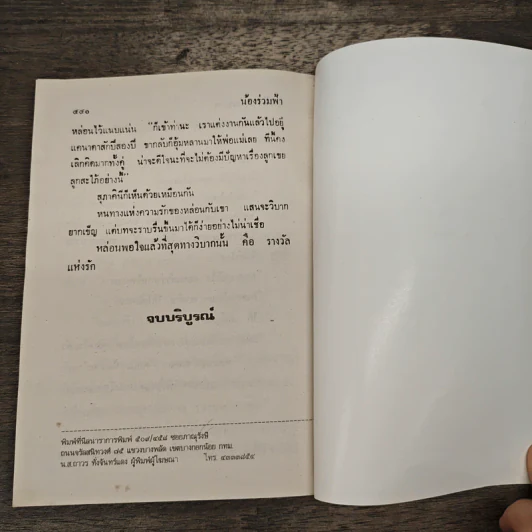 ๕๙๑ น้องร่วมฟ้า
หล่อนไว้แนบแน่น "ก็เข้าท่านะ เราแต่งงานกันแล้วไปอยู่
แคนาดาสักปีสองปี ขากลับก็อุ้มหลานมาให้พ่อแม่เลย ทีนี้คง
เลิกคิดมากทั้งคู่ น่าจะดีใจนะที่จะไม่ต้องมีปัญหาเรื่องลูกเขย
ลูกสะใภ้อย่างนี้"
สุภาคินีก็เห็นด้วยเหมือนกัน
หนทางแห่งความรักของหล่อนกับเขา แสนจะวิบาก
ยากเข็ญ แต่บทจะราบรื่นขึ้นมาได้ก็ง่ายอย่างไม่น่าเชื่อ
หล่อนพอใจแล้วที่สุดทางวิบากนั้น คือ รางวัล
แห่งรัก
จบบริบูรณ์
พิมพ์ที่นีลนาราการพิมพ์ ๕๐๙/๔๕๘ ซอยภาณุรังษี
ถนนจรัลสนิทวงศ์ ๗๕ แขวงบางพลัด เขตบางกอกน้อย กทม.
น.ส.ถาวร ทั่งจันทร์แดง ผู้พิมพ์ผู้โฆษณา โทร. ๔๓๓๓๘๕๔